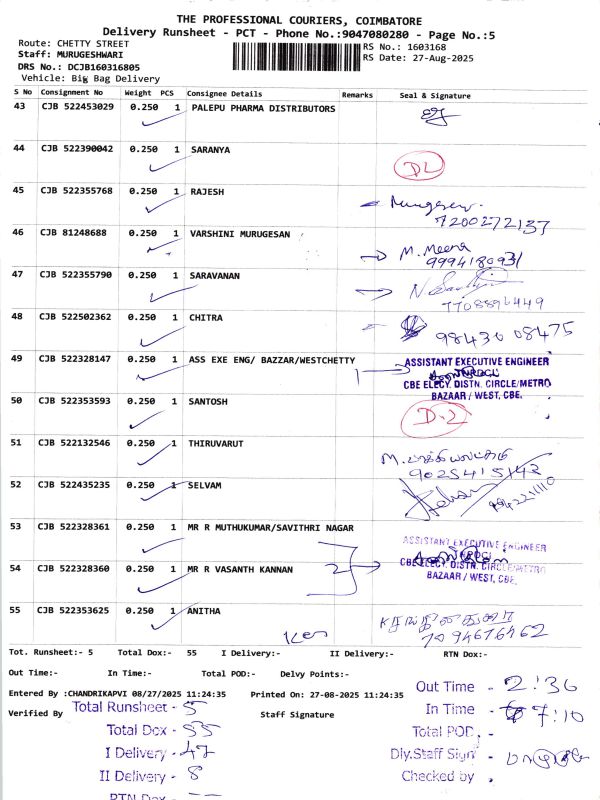 THE PROFESSIONAL COURIERS, COIMBATORE
Delivery Runsheet - PCT - Phone No.:9047080280 - Page No.:5
Route: CHETTY STREET
RS No.: 1603168
Staff: MURUGESHWARI
RS Date: 27-Aug-2025
DRS No.: DCJB160316805
Vehicle: Big Bag Delivery
S No Consignment No Weight PCS Consignee Details Remarks Seal & Signature
43 CJB 522453029 0.250 1 PALEPU PHARMA DISTRIBUTORS
44 CJB 522390042 0.250 1 SARANYA
45 CJB 522355768 0.250 1 RAJESH
7200272137
46 CJB 81248688 0.250 1 VARSHINI MURUGESAN M. Meena
9994180931
47 CJB 522355790 0.250 1 SARAVANAN
7708896449
48 CJB 522502362 0.250 1 CHITRA
98430 08475
49 CJB 522328147 0.250 1 ASS EXE ENG/ BAZZAR/WESTCHETTY
ASSISTANT EXECUTIVE ENGINEER
CBE ELECY. DISTN. CIRCLE/METRO
BAZAAR / WEST, CBE.
50 CJB 522353593 0.250 1 SANTOSH D-2
51 CJB 522132546 0.250 1 THIRUVARUT
9025415142
52 CJB 522435235 0.250 1 SELVAM
53 CJB 522328361 0.250 1 MR R MUTHUKUMAR/SAVITHRI NAGAR
ASSISTANT EXECUTIVE ENGINEER
54 CJB 522328360 0.250 1 MR R VASANTH KANNAN 2
CBE ELECY. DISTN. CIRCLE/METRO
BAZAAR / WEST, CBE.
55 CJB 522353625 0.250 1 ANITHA
7094676462
Tot. Runsheet:- 5 Total Dox:- 55 I Delivery:- II Delivery:- RTN Dox:-
Out Time:- In Time:- Total POD:- Delvy Points:-
Entered By :CHANDRIKAPVI 08/27/2025 11:24:35 Printed On: 27-08-2025 11:24:35
Verified By Staff Signature
Total Runsheet - 5
Total Dox - 55
I Delivery - 47
II Delivery - 8
RTN Dox -
Out Time - 2:36
In Time - 7:10
Total POD -
Dly.Staff Sign -
Checked by